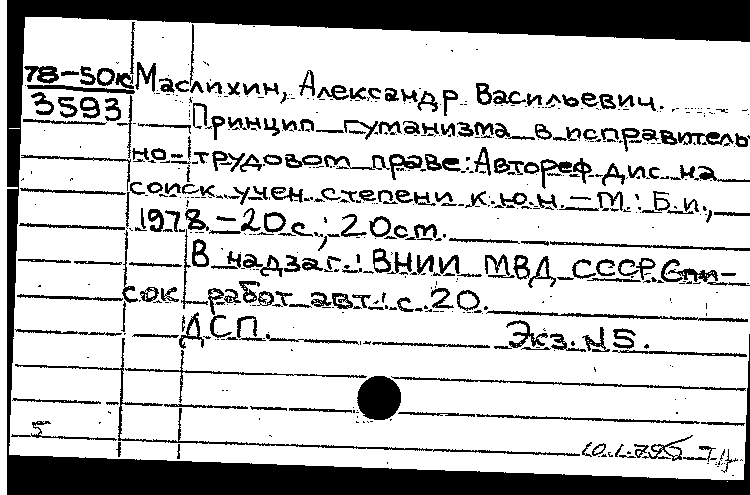 78-50к Маслихин, Александр Васильевич.
3593 Принцип гуманизма в исправитель
но-трудовом праве: Автореф дис на
соиск учен степени к.ю.н. - М.: Б.и.,
1978. - 20с.; 20см.
В надзаг.: ВНИИ МВД СССР. Спи-
сок работ авт.: с. 20.
ДСП. Экз. №5.
5